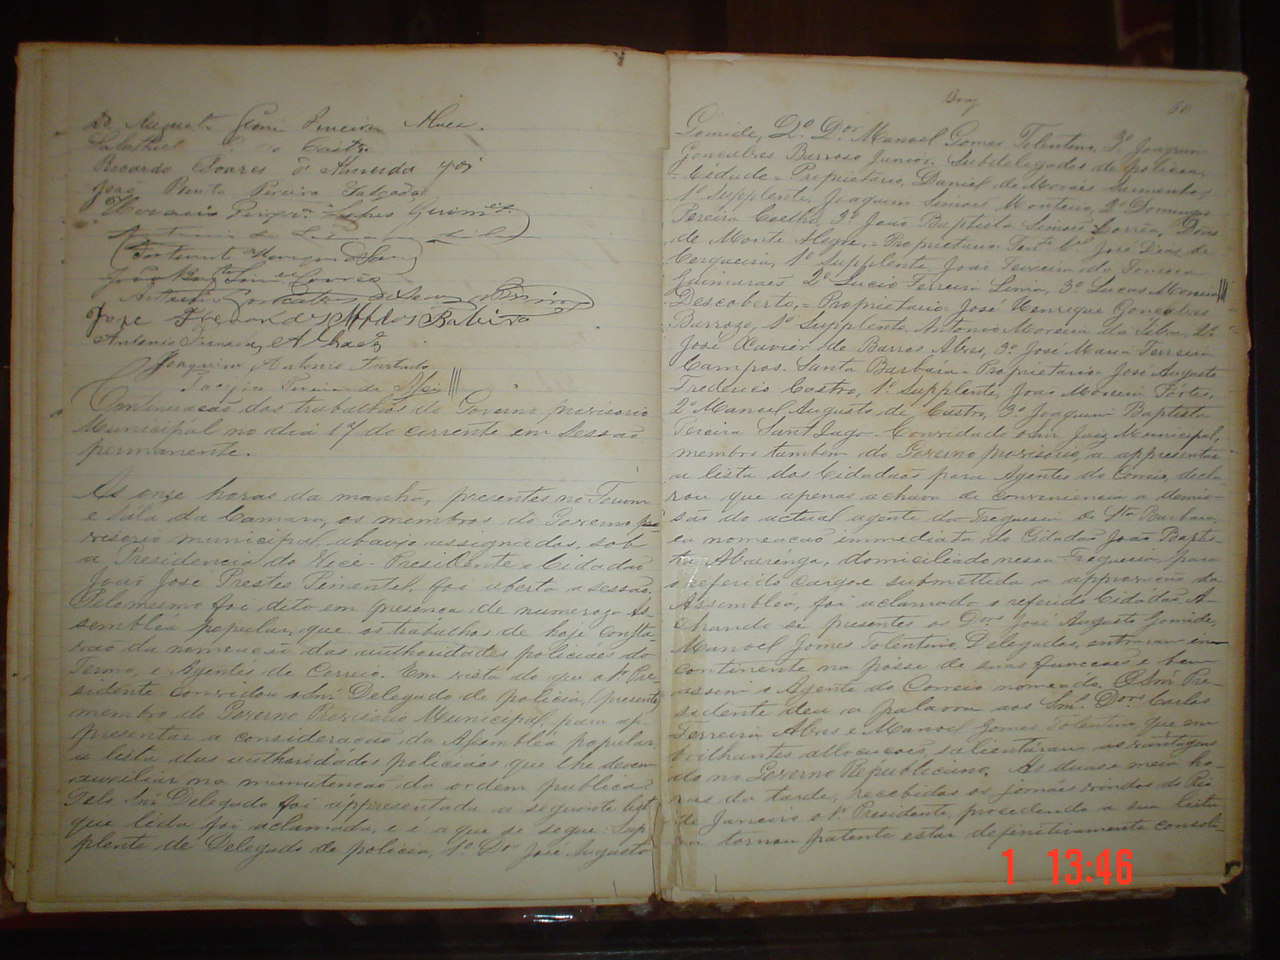 Dr Augusto Pereira Alves.
Castro
Ricardo Soares d'Almeida
João Pereira Salgado
Horacio Lopes Guim.es
Fortunato
João Bap.ta Sim.es Corrêa
Antonio
José
Antonio
Joaquim Antonio Furtado
Pereira de
Continuação dos trabalhos do Governo provisorio
Municipal no dia 17 do corrente em sessão
permanente.
As onze horas da manhã, presentes no
e Sála da Camara, os membros do Governo pro
visorio municipal, abaixo assignados, sob
a Presidencia do Vice-Presidente o Cidadão
João José Prestes Pimentel, foi aberta a sessão.
Pelo mesmo foi dito em presença de numeroza As
sembléa popular, que os trabalhos de hoje consta
rão da nomeação das authoridades policiaes do
Termo, e Agentes do Correio. Em vista do que o Snr. Pre
sidente convidou o Snr Delegado de policia, (presente)
membro do Governo Provisorio Municipal, para ap
presentar a consideração da Assembléa popular,
a lista das authoridades policiaes que lhe devem
auxiliar na manutenção da ordem publica.
Pelo Snr Delegado foi appresentada a seguinte lista
que lida foi aclamada, e é a que se segue: Sup
plente de Delegado de policia, 1º Dor José Augusto
60
Gomide, 2º Dor Manoel Gomes Tolentino, 3º Joaquim
Gonçalves Barroso Junior. Subdelegados de policia,
- Cidade - Proprietario, Daniel de Moraes Sarmento,
1º Supplente, Joaquim Simões Monteiro, 2º Domingos
Pereira Coelho, 3º João Baptista Simões Corrêa, Dores
de Monte Alegre, - Proprietario Tente Cel José Dias de
Cerqueira, 1º Supplente, João Teixeira da Fonseca
Guimarães 2º Lucio Ferreira Lima, 3º Lucas Moreira
Descoberto, - Proprietario José Henrique Gonçalves
Barrozo, 1º Supplente, Antonio Moreira da Silva, 2º
José Xavier de Barros Alves, 3º José Maria Ferreira
Campos. Santa Barbara - Proprietario - José Augusto
Frederico Castro, 1º Supplente, João Moreira Fortes,
2º Manoel Augusto de Castro, 3º Joaquim Baptista
Pereira Sant'Iago. Convidado o Snr Juiz Municipal,
membro tambem do Governo provisorio, a appresentar
a lista dos Cidadãos para Agentes do Correio, decla
rou que apenas achava de conveniencia a demis-
são do actual agente da Freguesia de Sta Barbara,
e a nomeação immediata do Cidadão João Baptis
ta Alvarenga, domiciliado nessa Freguesia, para
o referido Cargo e submettida a approvação da
Assembléa, foi aclamado o referido Cidadão. A-
chando-se presentes os Dors José Augusto Gomide,
Manoel Gomes Tolentino, Delegados, entraram in
continente na posse de suas funcções e bem
assim o Agente do Correio nomeado. O Snr Pre-
sidente deu a palavra aos Snrs Dors Carlos
Ferreira Alves e Manoel Gomes Tolentino que em
brilhantes allocuções salientaram as vantagens
do no Governo Republicano. As duas e meia ho-
ras da tarde, recebidos os jornaes vindos do Rio
de Janeiro o Snr. Presidente, procedendo a sua leitu
ra tornou patente estar definitivamente consoli-
1 13:46